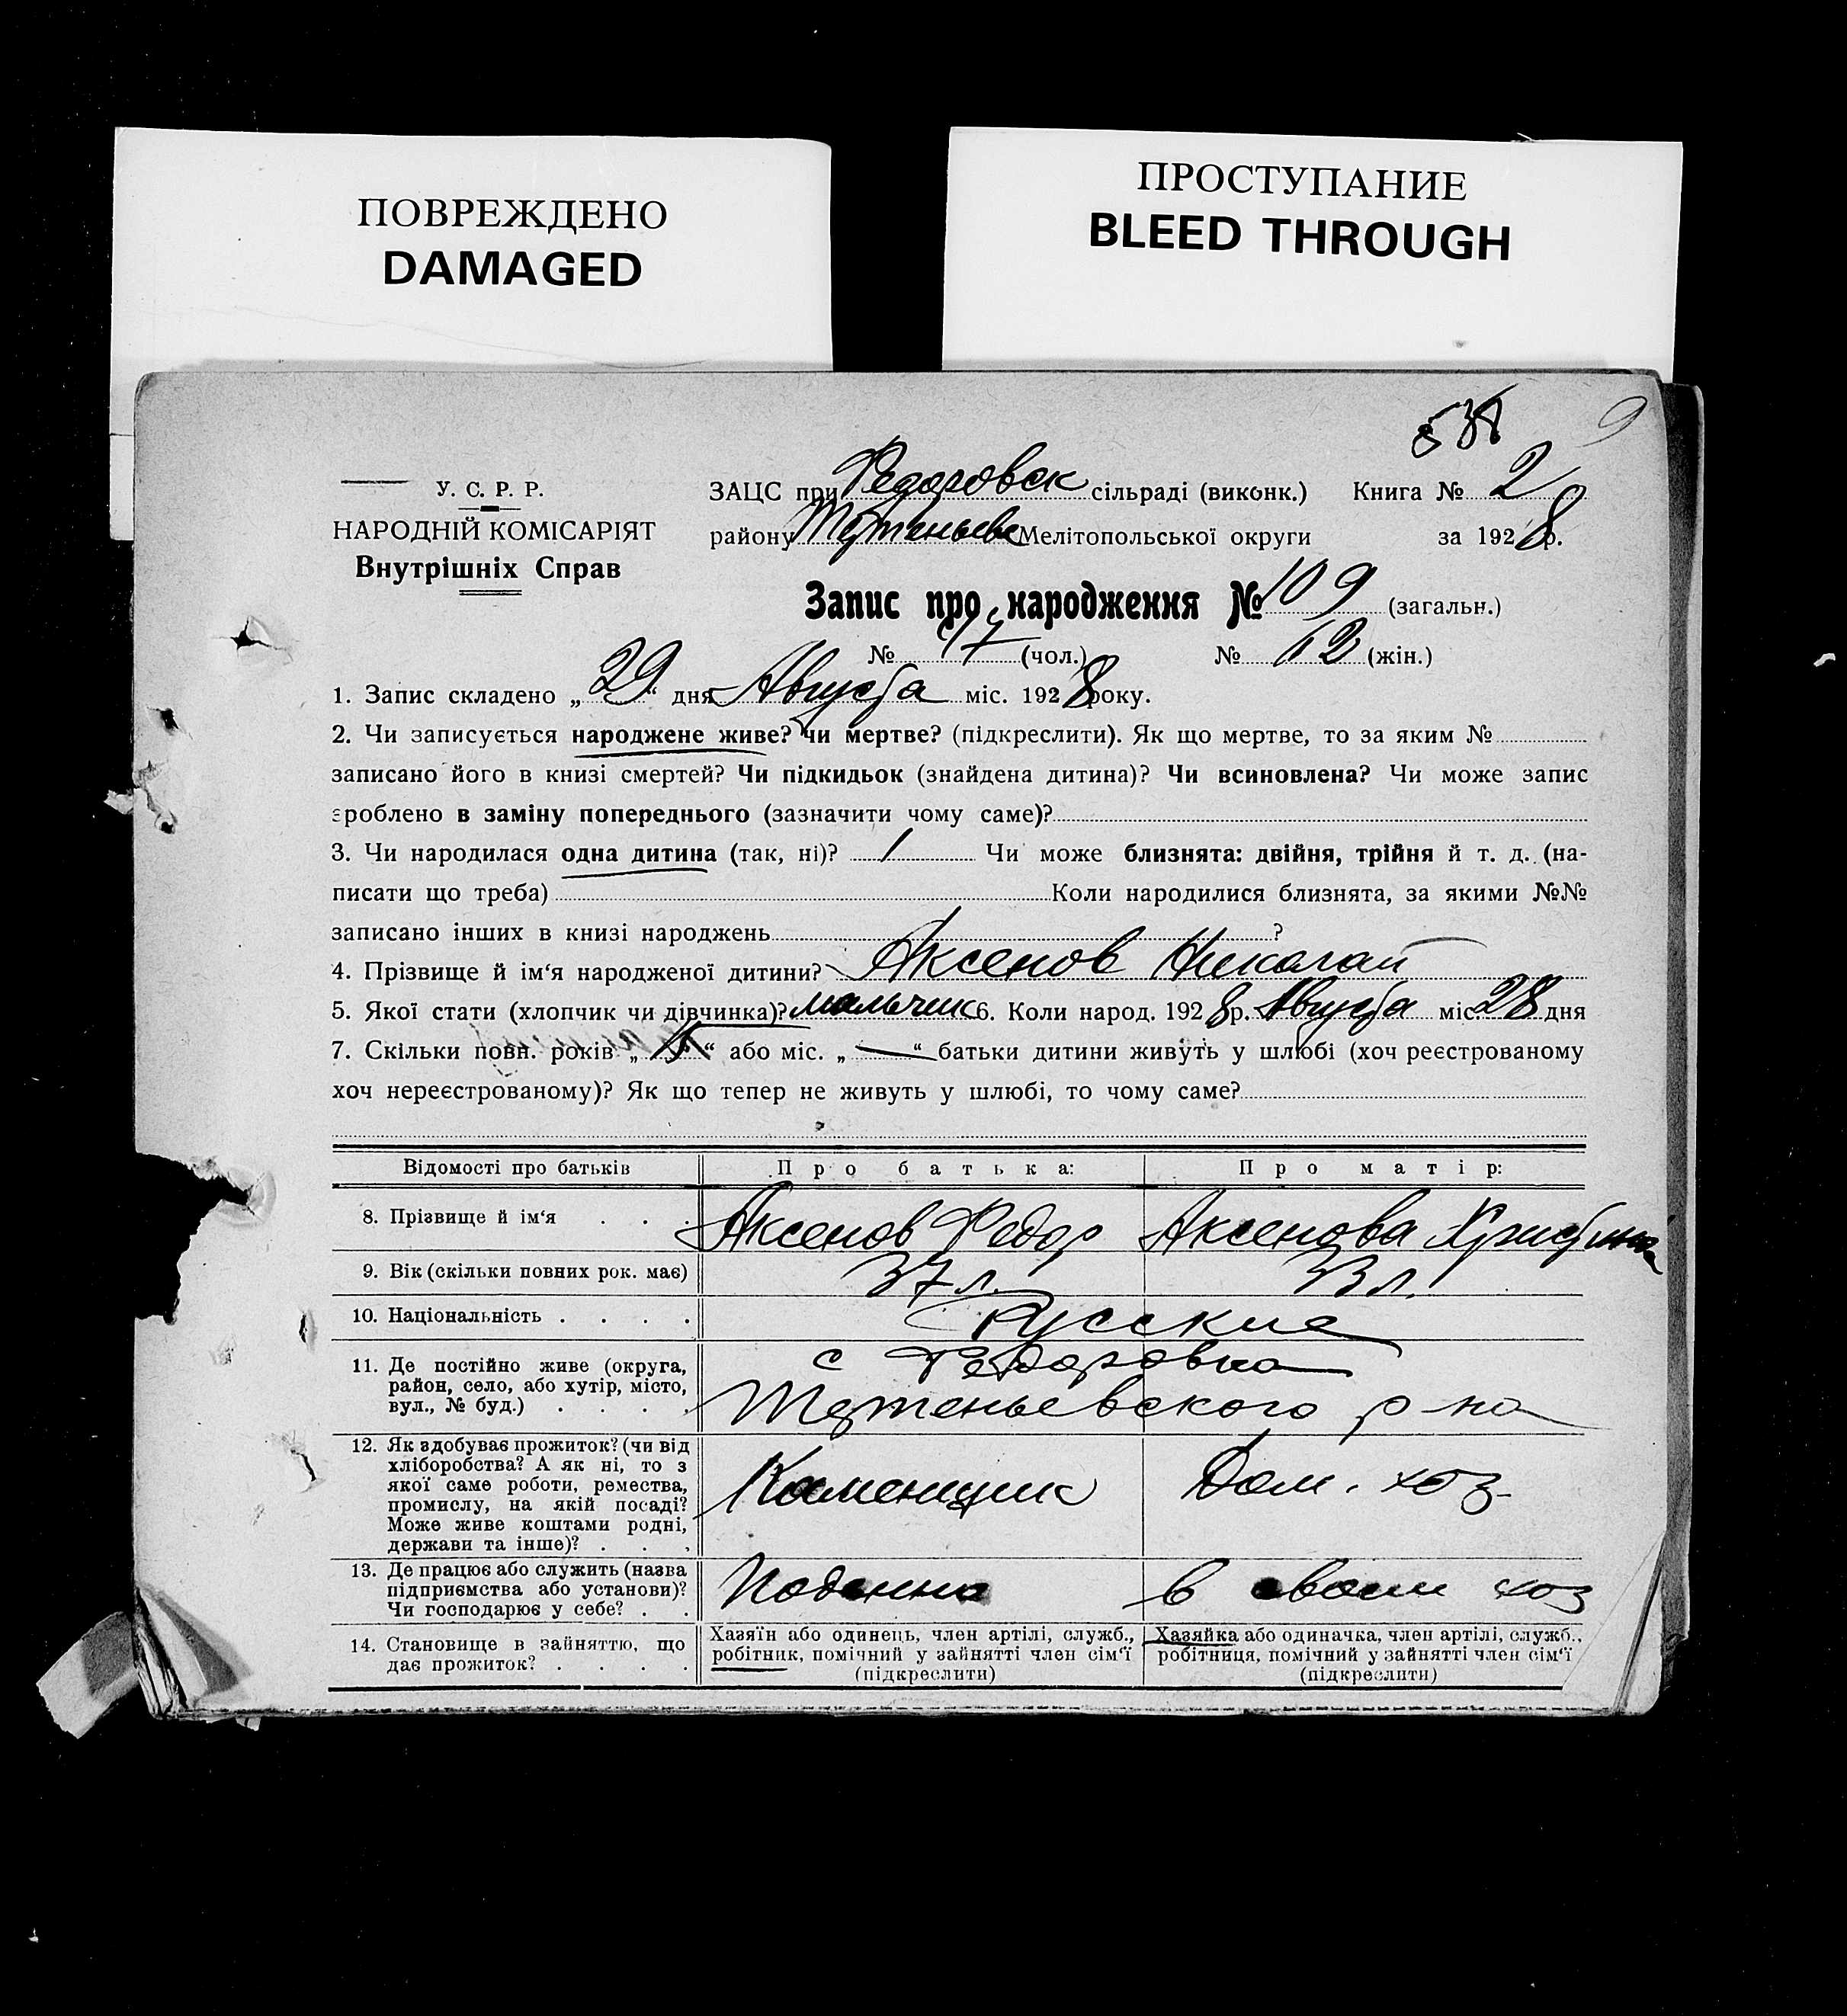 ПОВРЕЖДЕНО
DAMAGED
ПРОСТУПАНИЕ
BLEED THROUGH
У. С. Р. Р.
НАРОДНІЙ КОМІСАРІЯТ
Внутрішніх Справ
ЗАЦС при Федоровск сільраді (виконк.) Книга № 2
району Мелітопольської округи за 1928 р.
Запис про народження № 109 (загальн.)
№ 47 (чол.) № 62 (жін.)
1. Запис складено „29“ дня Августа міс. 1928 року.
2. Чи записується народжене живе? чи мертве? (підкреслити). Як що мертве, то за яким №
записано його в книзі смертей? Чи підкидьок (знайдена дитина)? Чи всиновлена? Чи може запис
зроблено в заміну попереднього (зазначити чому саме)?
3. Чи народилася одна дитина (так, ні)? 1 Чи може близнята: двійня, трійня й т. д. (на-
писати що треба) Коли народилися близнята, за якими №№
записано інших в книзі народжень ?
4. Прізвище й ім‘я народженої дитини? Аксенов Николай
5. Якої стати (хлопчик чи дівчинка)? мальчик 6. Коли народ. 1928 р. Августа міс. 28 дня
7. Скільки повн. років „15“ або міс. „—“ батьки дитини живуть у шлюбі (хоч реєстрованому
хоч нереєстрованому)? Як що тепер не живуть у шлюбі, то чому саме?
Відомості про батьків Про батька: Про матір:
8. Прізвище й ім‘я . . . Аксенов Федор Аксенова Христина
9. Вік (скільки повних рок. має) 37 л. 33 л.
10. Національність . . . . Русские
11. Де постійно живе (округа, с Федоровка
район, село, або хутір, місто,
вул., № буд.) . . . . р-на
12. Як здобуває прожиток? (чи від
хліборобства? А як ні, то з
якої саме роботи, ремества, Каменщик Дом. хоз.
промислу, на якій посаді?
Може живе коштами родні,
держави та інше)? . . .
13. Де працює або служить (назва
підприємства або установи)? Поденно в своем хоз
Чи господарює у себе? . .
14. Становище в зайняттю, що
дає прожиток? . . . .
Хазяїн або одинець, член артілі, служб.,
робітник, помічний у зайнятті член сім‘ї
(підкреслити)
Хазяйка або одиначка, член артілі, служб.,
робітниця, помічний у зайнятті член сім‘ї
(підкреслити)